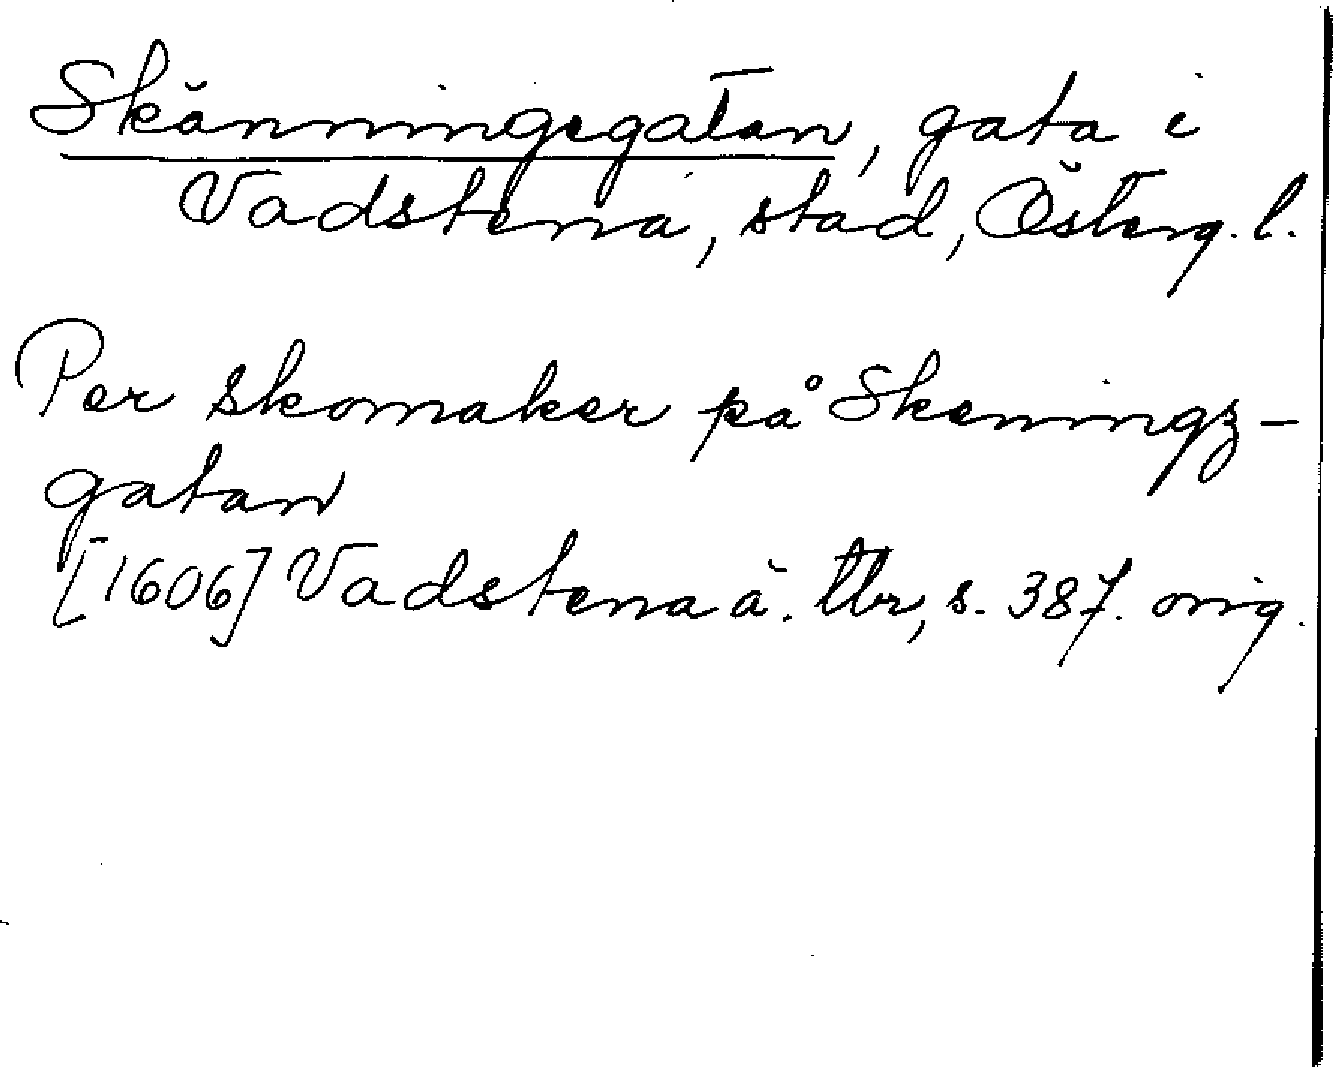 Skänningegatan, gata i
Vadstena, stad, Österg. l.
Per skomaker på Skeningz-
gatan
[1606] Vadstena ä. tbr, s. 387. orig.